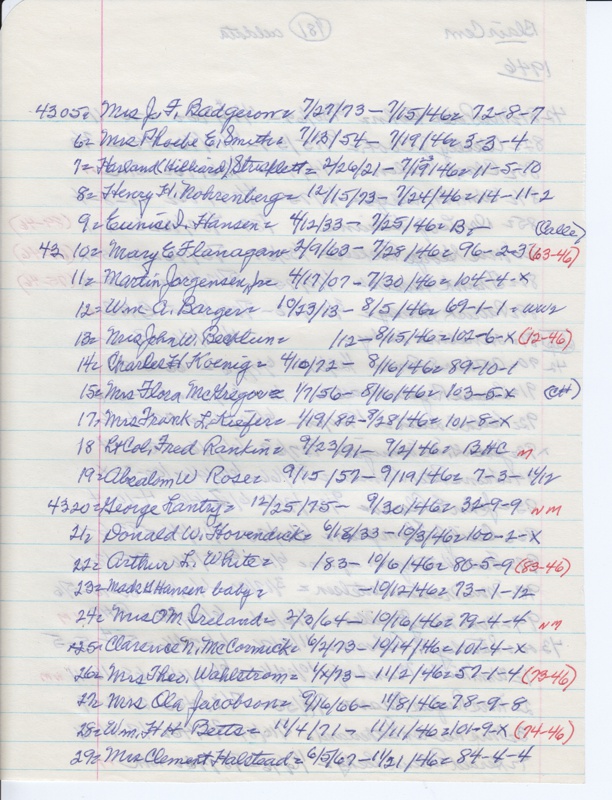 4305= Mrs J. F. Badgerow= 7/27/73 - 7/15/46= 72-8-7
6= Mrs Phoebe E. Smith= 7/13/54 - 7/19/46= 3-3-4
7= Harland (Hilliard) Stricklett= 2/26/21 - 7/19/46= 11-5-10
8= Henry H. Rohrenberg= 12/15/73 - 7/24/46= 14-11-2
9= Eunice I. Hansen= 4/12/33 - 7/25/46= B.-
43 10= Mary E. Flanagan= 2/9/63 - 7/28/46= 96-2-3 (63-46)
11= Martin Jorgensen, Jr= 4/17/07 - 7/30/46= 104-4-X
12= Wm. A. Barger= 10/23/13 - 8/5/46= 69-1-1= WW2
13= Mrs John W. /12 - 8/15/46= 102-6-X (12-46)
14= Charles H. Koenig= 4/10/72 - 8/16/46= 89-10-1
15= Mrs Flora McGregor= 1/7/56 - 8/16/46= 103-5-X (CH)
17= Mrs Frank L. Kiefer= 1/19/82 - 8/28/46= 101-8-X
18 Lt Col, Fred Rankin= 9/23/91 - 9/2/46= BHC M
19= Absalom W Rose= 9/15/57 - 9/19/46= 7-3-11/12
4320= George Lantry= 12/25/75 - 9/30/46= 32-9-9 NM
21= Donald W. Hovendick= 6/18/33 - 10/3/46= 100-2-X
22= Arthur L. White= /83 - 10/6/46= 80-5-9 (83-46)
23= Hansen baby= - 10/12/46= 73-1-12
24= Mrs O M Ireland= 2/3/64 - 10/16/46= 79-4-4 NM
25= Clarence N. McCormick= 6/2/73 - 10/14/46= 101-4-X
26= Mrs Theo. Wahlstrom= 1/X/73 - 11/2/46= 57-1-4 (73-46)
27= Mrs Ola Jacobson= 9/16/66 - 11/8/46= 78-9-8
28= Wm. H H Betts= 11/4/71 - 11/11/46= 101-9-X (74-46)
29= Mrs Clement Halstead= 6/5/67 - 11/21/46= 84-4-4